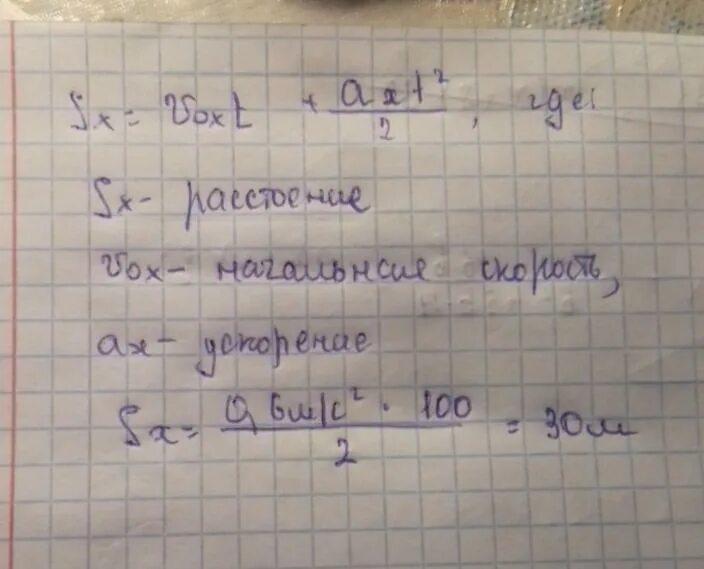 Sx = V0xt + axt²/2, где:
Sx - расстоение
V0x - начальная скорость,
ax - ускорение
Sx = 0,6м/с² · 100/2 = 30м